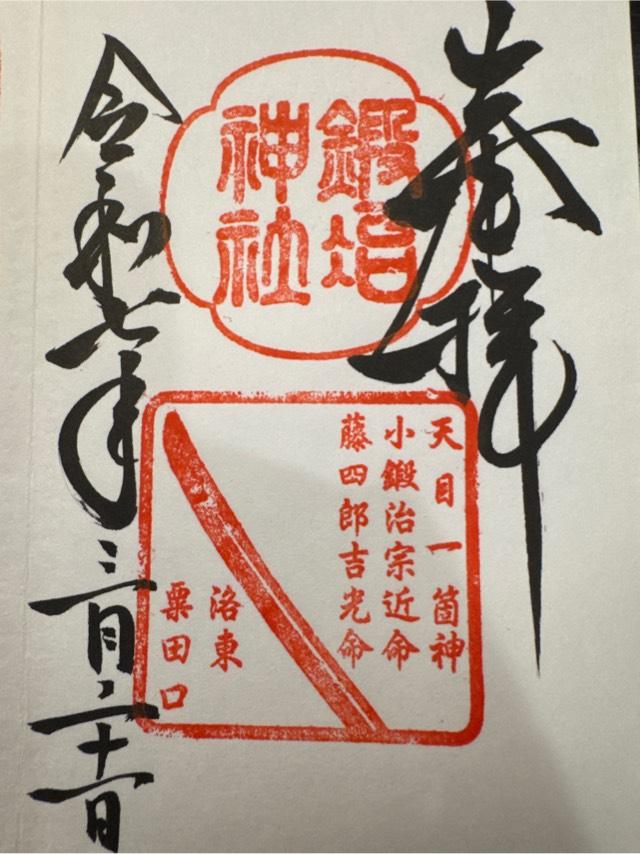 奉拝
鍛冶
神社
天目一箇神
小鍛治宗近命
藤四郎吉光命
洛東
粟田口
令和七年三月二十一日